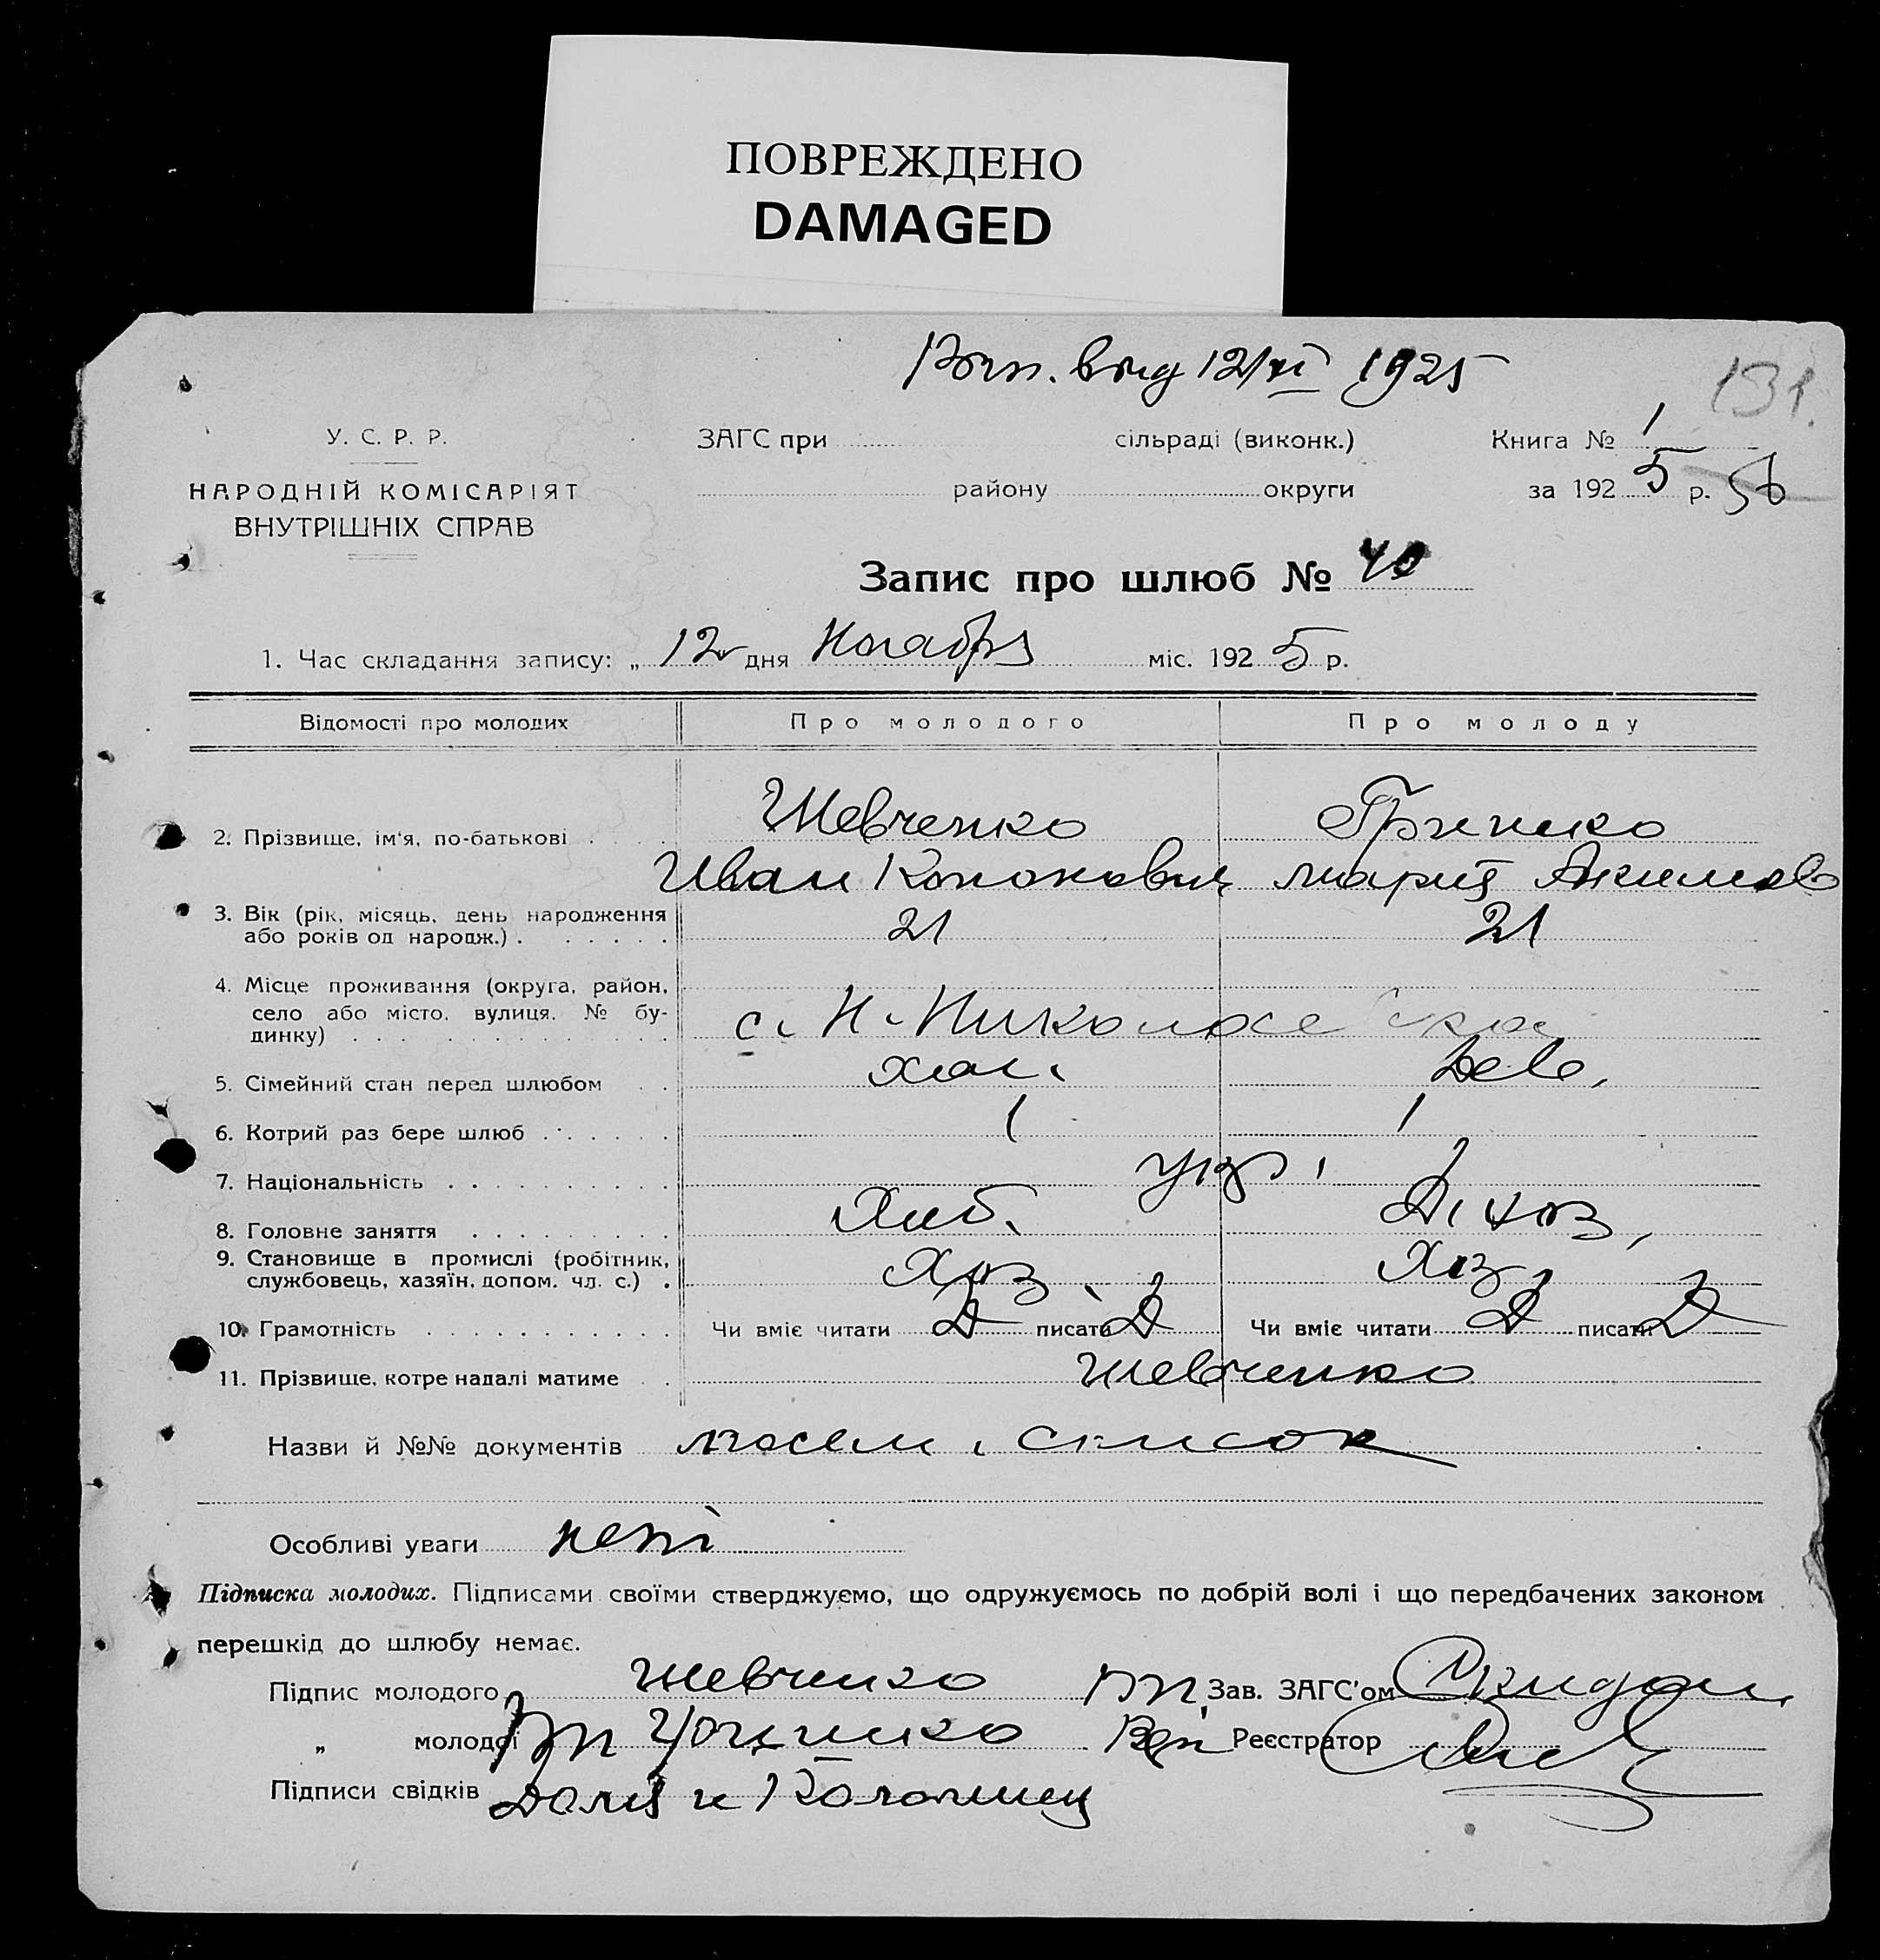 ПОВРЕЖДЕНО
DAMAGED
12/XI 1925
131.
У. С. Р. Р.
НАРОДНІЙ КОМІСАРІЯТ
ВНУТРІШНІХ СПРАВ
ЗАГС при сільраді (виконк.)
району округи
Книга № 1
за 192 5 р. 56
Запис про шлюб № 40
1. Час складання запису: „ 12 дня Ноября міс. 192 5 р.
Відомості про молодих Про молодого Про молоду
2. Прізвище, ім'я, по-батькові Шевченко
Иван Кононович Мария Акимов
3. Вік (рік, місяць, день народження
або років од народж.) 21 21
4. Місце проживання (округа, район,
село або місто, вулиця, № бу-
динку) с. Н-Николаев
5. Сімейний стан перед шлюбом хол. Дев.
6. Котрий раз бере шлюб 1 1
7. Національність укр.
8. Головне заняття Хліб. Д. хоз.
9. Становище в промислі (робітник,
службовець, хазяїн, допом. чл. с.) Хоз. Хоз.
10. Грамотність Чи вміє читати Д писати Д Чи вміє читати Д писати Д
11. Прізвище, котре надалі матиме Шевченко
Назви й №№ документів посем. список
Особливі уваги
Підписка молодих. Підписами своїми стверджуємо, що одружуємось по добрій волі і що передбачених законом
перешкід до шлюбу немає.
Підпис молодого Шевченко Зав. ЗАГС'ом Скидан
„ молодої Реєстратор
Підписи свідків Доля и Коломиец